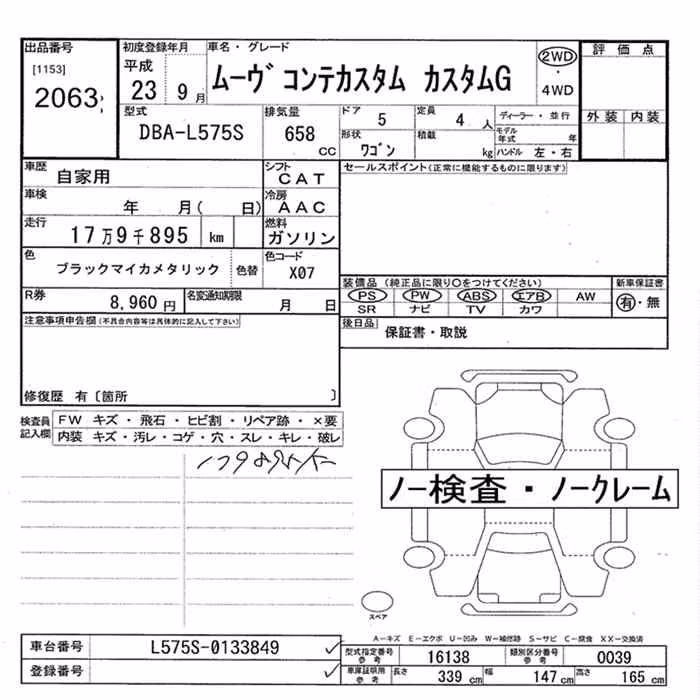 出品番号
[1153]
2063
初度登録年月
平成
23 9 月
車名・グレード
ムーヴ コンテカスタム カスタムG
2WD
・
4WD
評価点
外装 内装
型式
DBA-L575S
排気量
658 CC
ドア 5
定員 4 人
形状 ワゴン
積載 kg
ディーラー・並行
モデル年式 年
ハンドル 左・右
車歴
自家用
シフト
CAT
セールスポイント(正常に機能するものに限ります)
車検
年 月( 日)
冷房
AAC
走行
17万9千895 km
燃料
ガソリン
色
ブラックマイカメタリック
色替
色コード
X07
装備品 (純正品に限り○をつけてください)
新車保証書
PS PW ABS エアB AW
有・無
SR ナビ TV カワ
R券
8,960 円
名変通知期限
月 日
後日品
保証書・取説
注意事項申告欄(不具合内容等は具体的に記入して下さい)
修復歴 有〔箇所 〕
検査員記入欄
FW キズ・飛石・ヒビ割・リペア跡・×要
内装 キズ・汚レ・コゲ・穴・スレ・キレ・破レ
ノー検査・ノークレーム
スペア
A―キズ E―エクボ U―凹み W―補修跡 S―サビ C―腐食 XX―交換済
車台番号
L575S-0133849
登録番号
型式指定番号 参考
16138
類別区分番号 参考
0039
車庫証明用 参考
長さ 339 cm
幅 147 cm
高さ 165 cm